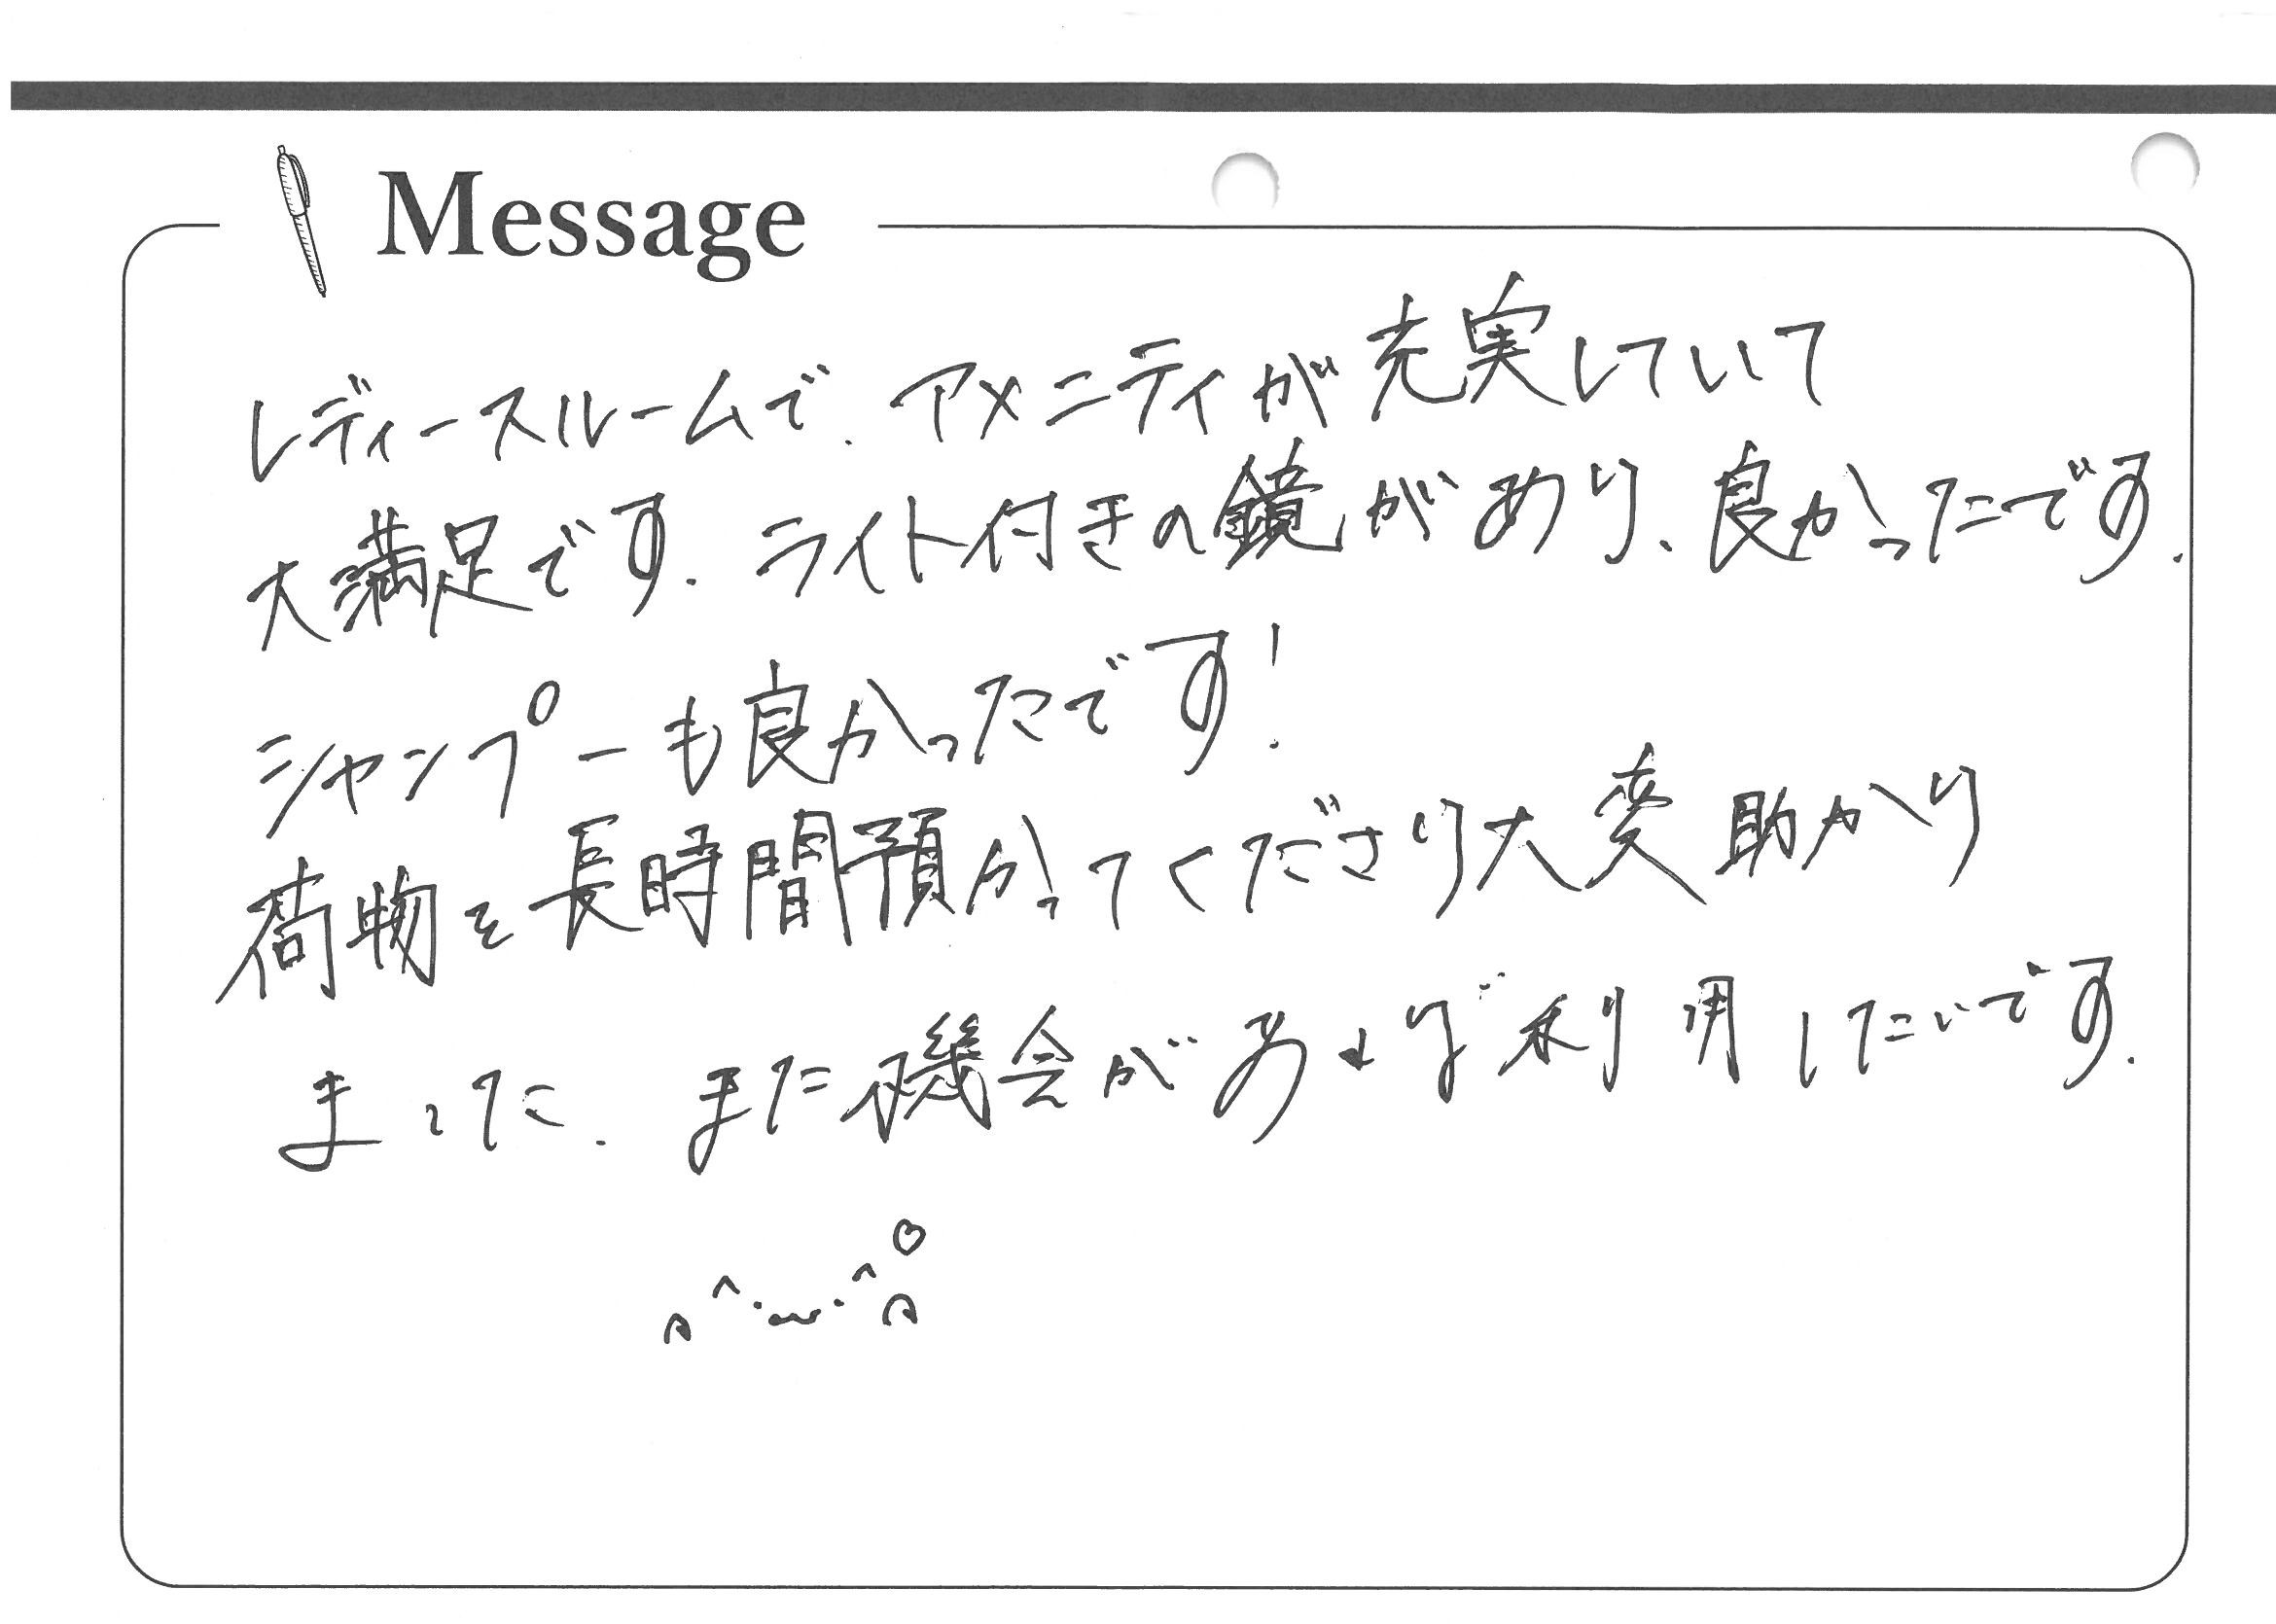 Message
レディースルームで、アメニティが充実していて
大満足です。ライト付きの鏡があり、良かったです。
シャンプーも良かったです!
荷物を長時間預かってくださり大変助かり
ました。また機会があれば利用したいです。